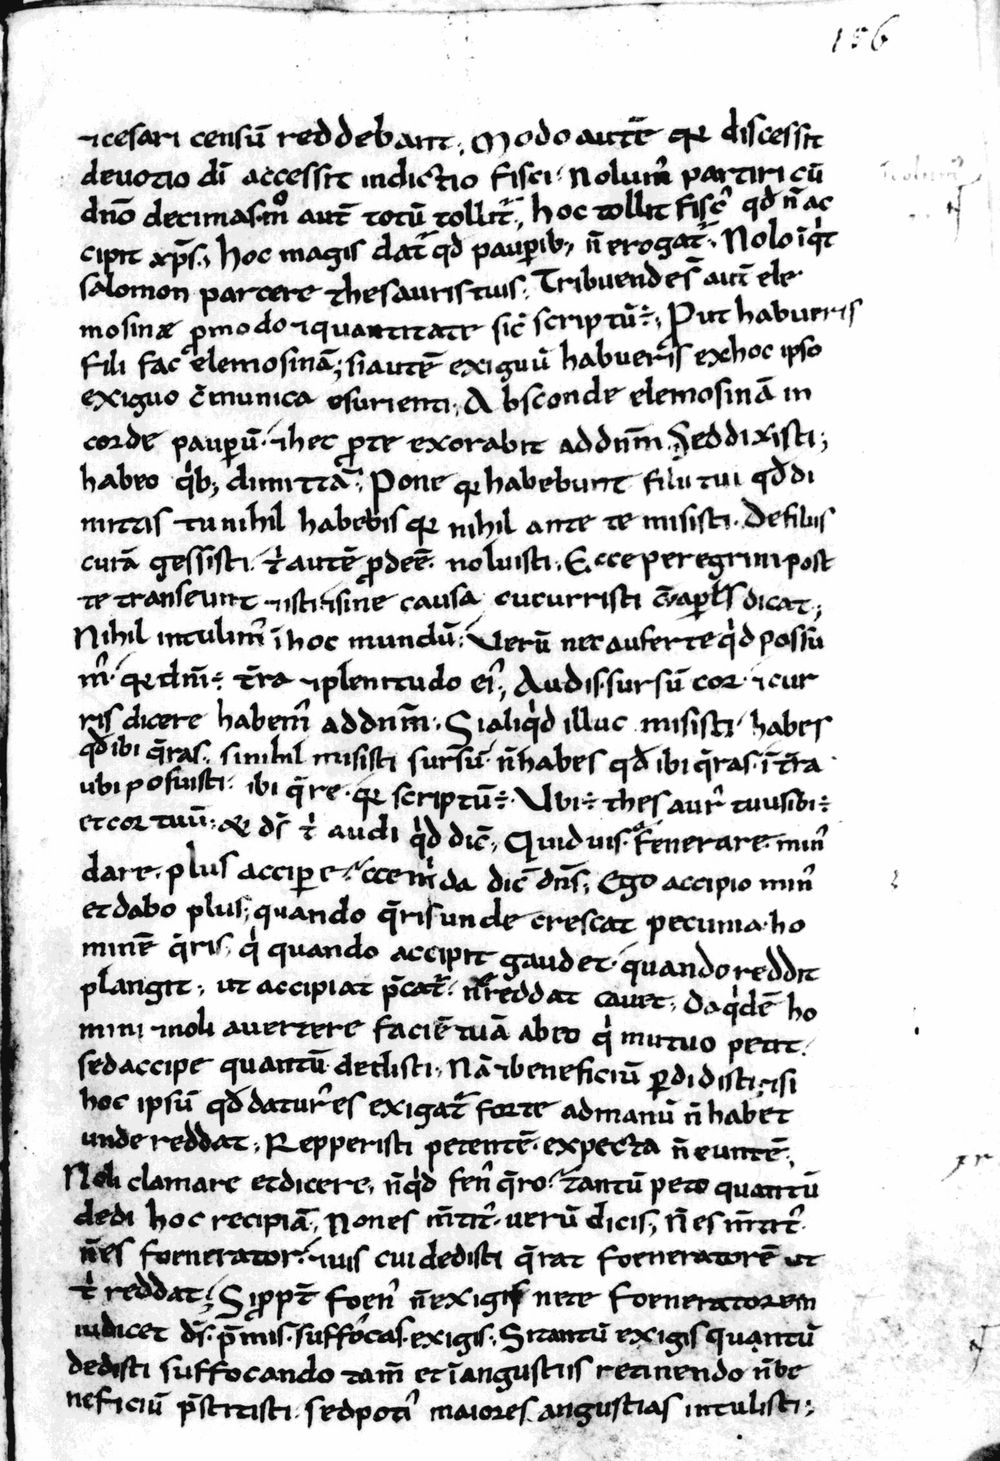 156
⁊cesari censū reddebant. Modo autē qr discessit
deuotio dī accessit indictio fisci. Nolum̄ partiri cū
dn̄o decimas. m̊ aut̄ totū tollit̄. hoc tollit fisc̄ qđ n̄ ac
cipit xp̄s. hoc magis dat̄ qđ pauperib; n̄ erogat̄. Nolo īqt
salomon parcere thesauris tuis. Tribuendes̄ aut̄ ele
mosinæ p modo ⁊quantitate sic̄ scriptū÷. Put habueris
fili fac elemosinā; si autē exiguū habueris exhoc ipso
exiguo c̄munica esurienti. Absconde elemosinā in
corde pauperū. ⁊hec p te exorabit ad dn̄m. Sed dixisti;
habeo qb; dimittā. Pone qr habebunt filii tui qđ di
mittis tu nihil habebis qr nihil ante te misisti. De filiis
curā gessisti. t̄ autē pdeē noluisti. Ecce peregrini post
te transeunt ⁊isti ⁊sine causa cucurristi c̄ apłs dicat;
Nihil intulim̄ ī hoc mundū. Verū nec auferre qd possu
m̄. qr dn̄i÷ t̄ra ⁊plenitudo ei᾽; Audis. sursū cor. ⁊cur
ris dicere habem᾽ ad dn̄m. Si aliqd illuc misisti. habes
qđ ibi q̄ras. si nihil misisti sursū. n̄ habes qđ ibi q̄ras. ī t̄ra
ubi posuisti. ibi q̄re. qr scriptū÷. Vbi÷ thesaur᾽ tuus ibi÷
et cor tuū. & ds̄ t̄ audi qd dic̄. Quid uis. fenerare. min᾽
dare. plus accipere. ecce m̄ da dic̄ dn̄s; Ego accipio min᾽
et dabo plus; quando q̄ris unde crescat pecunia. ho
minē q̄ris, q quando accipit gaudet. quando reddit
plangit; ut accipiat p̄cat̄. n̄ reddat cauet; Da qdē ho
mini ⁊noli auertere faciē tuā ab eo q mutuo petit.
sed accipe quantū dedisti. Nā ⁊beneficiū pdidisti. ⁊si
hoc ipsū qđ datur᾽ es exigat̄ forte ad manū n̄ habet
unde reddat. Repperisti petentē. expecta n̄ euntē.
Noli clamare et dicere, n̄qd fen᾽ q̄ro. Tantū peto quantū
dedi hoc recipiā, Non es m̄tit᾽. uerū dicis, n̄ es m̄tit᾽.
n̄ es foenerator. ⁊uis cui dedisti q̄rat foeneratorē ut
t̄ reddat; Si ppt̄ foen᾽ n̄ exigis ne te foeneratorem
iudicet ds̄. p̄mis. suffocas. exigis. Si tantū exigis quantū
dedisti suffocando tam̄ et ī angustiis retinendo n̄ be
neficiū p̄stitisti. sed poti᾽ maiores angustias intulisti;